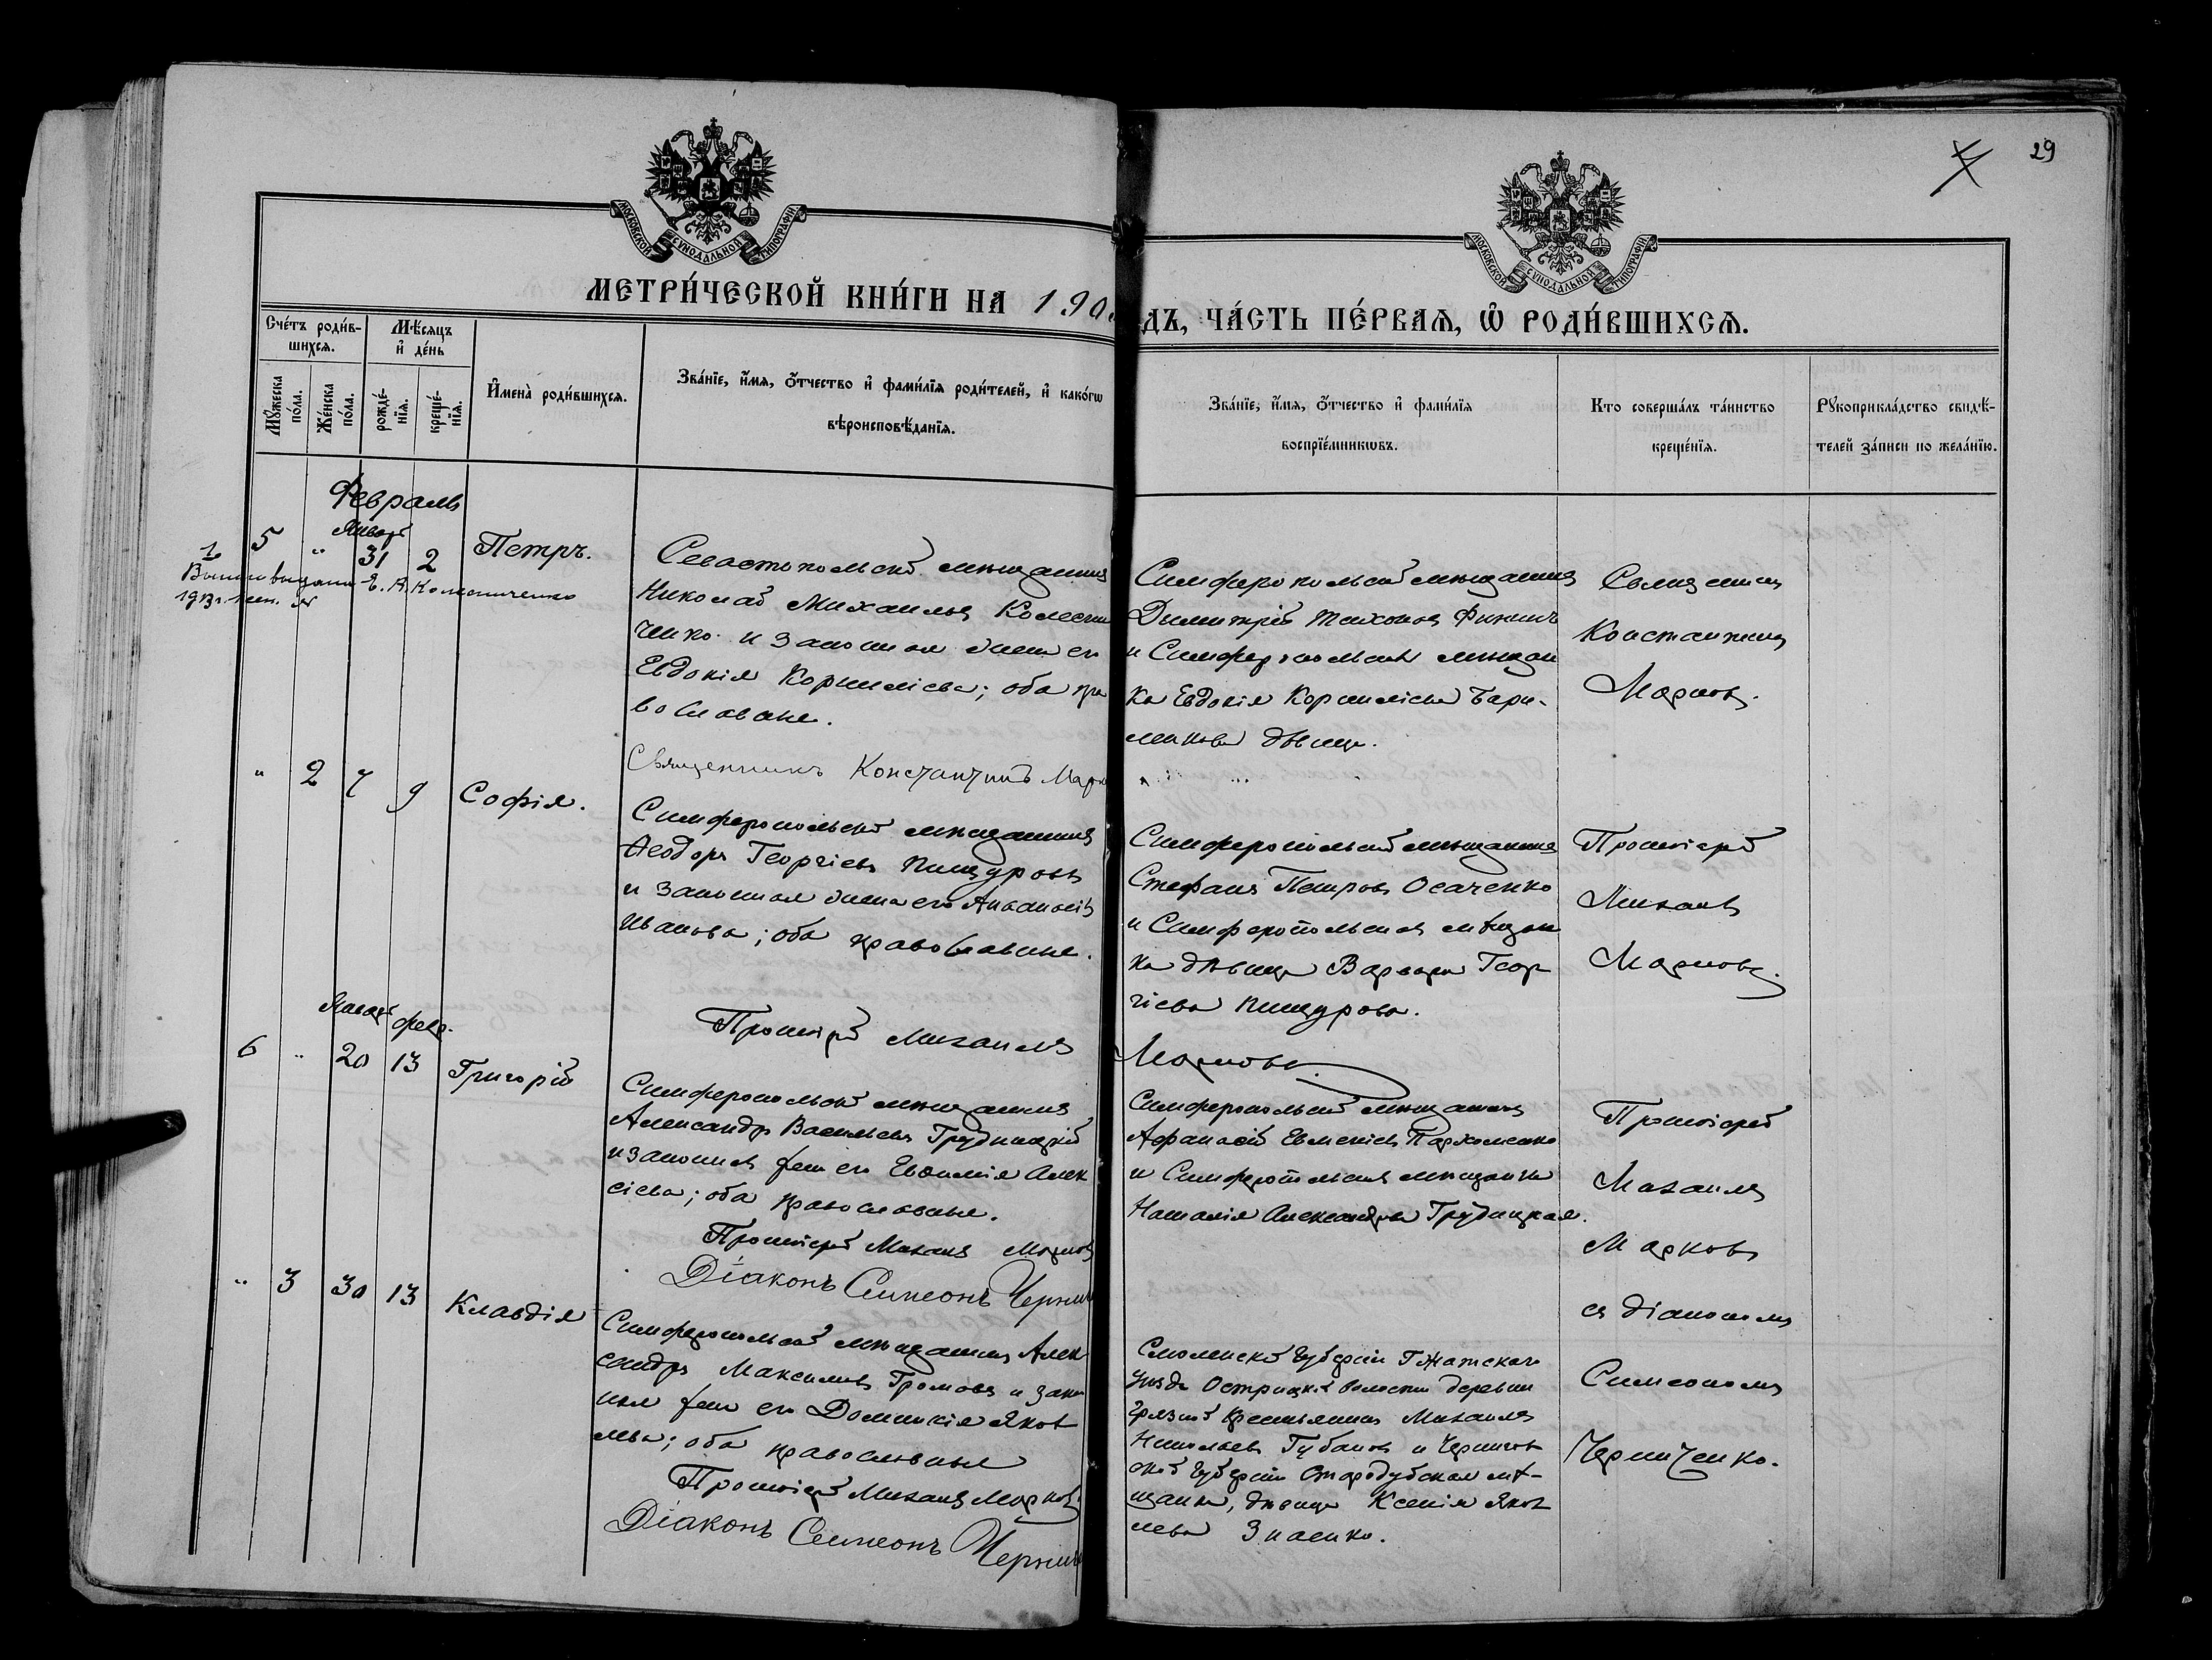 29
МОСКОВСКОЙ СУНОДАЛЬНОЙ ТИПОГРАФІИ
МОСКОВСКОЙ СУНОДАЛЬНОЙ ТИПОГРАФІИ
МЕТРИ́ЧЕСКОЙ КНИ́ГИ НА 190
ДЪ, ЧА́СТЬ ПЕ́РВАѦ, Ѡ РОДИ́ВШИХСѦ.
Сче́тъ роди́в-
шихсѧ.
Мѣ́сѧцъ
и҆ де́нь
Мꙋ́жеска
по́ла.
Же́нска
по́ла.
рожде́-
нїѧ.
креще́-
нїѧ.
И҆мена̀ роди́вшихсѧ.
Зва́нїе, и҆́мѧ, ѻ҆́тчество и҆ фами́лїѧ роди́телей, и҆ како́гѡ
вѣроисповѣ́данїѧ.
Зва́нїе, и҆́мѧ, ѻ҆́тчество и҆ фами́лїѧ
воспрїе́мникѡвъ.
Кто соверша́лъ та́инство
креще́нїѧ.
Рꙋкоприкла́дство свидѣ́-
телей за́писи по жела́нїю.
Февраль
Январ
5 " 31 2 Петръ.
Севастопольскій мѣщанинъ
Николай Михаиловъ Колесни
ченко и законная жена его
Евдокія Корнилієва; оба пра
вославные.
Симферопольскій мѣщанинъ
Димитрій Тихоновъ
и Симферопольская мѣщан
ка Евдокія Корнилієва
дѣвица.
Священникъ
Константинъ
Марковъ.
Священникъ Константинъ Марк
" 2 7 9 Софія.
Симферопольскій мѣщанинъ
Ѳеодоръ Георгіевъ Пищуровъ
и законная жена его
Иванова; оба православные.
Симферопольскій мѣщанинъ
Стефанъ Петровъ Осаченко
и Симферопольская мѣщан
ка дѣвица Варвара Геор
гіева Пищурова.
Протоіерей
Михаилъ
Марковъ.
Протоіерей Михаилъ
Марковъ
Январь февр.
6 " 20 13 Григорій
Симферопольскій мѣщанинъ
Александръ Васильевъ Грудницкій
и законная жена его Евѳимія Алек
сіева; оба православные.
Симферопольскій мѣщанинъ
Афанасій Евменіевъ Пархоменко
и Симферопольская мѣщанка
Наталія Александрова Грудницкая.
Протоіерей
Михаилъ
Марковъ
съ діакономъ
Симеономъ
Черниченко.
Протоіерей Михаилъ Марковъ
Діаконъ Симеонъ Черни
" 3 30 13 Клавдія
Симферопольскій мѣщанинъ Алек
сандръ Максимовъ Громовъ и закон
ная жена его Домникія Яков
лева; оба православные
Смоленской губерніи Гжатскаго
уѣзда Острицкой волости деревни
крестьянинъ Михаилъ
Губановъ и Чернигов
ской губерніи Стародубская мѣ-
щанка, дѣвица Ксенія Яков
лева
Протоіерей Михаилъ Марковъ
Діаконъ Симеонъ Черни